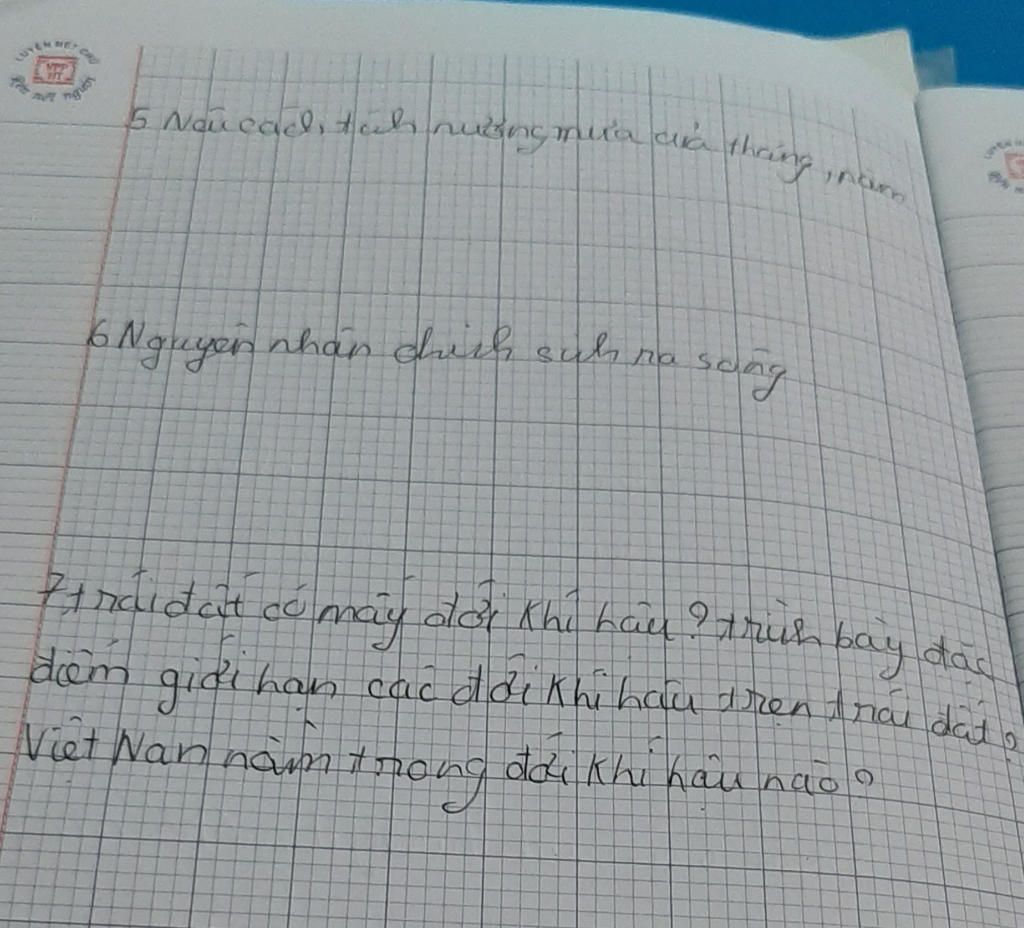 LUYỆN NÉT CHỮ
VPP
HT
RÈN NẾT NGƯỜI
5 Nêu cách tính lượng mưa của tháng, năm
6 Nguyên nhân chính sinh ra sóng
7 trái đất có mấy đới khí hậu? trình bày đặc
điểm giới hạn các đới khí hậu trên trái đất?
Việt Nam nằm trong đới khí hậu nào?